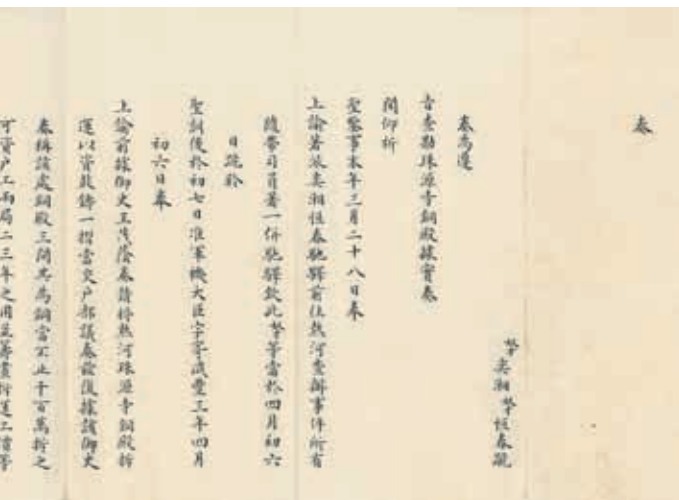 奏
奴才奕湘奴才恆春跪
奏為遵
旨查勘珠源寺銅殿據實奏
聞仰祈
聖鑒事本年三月二十八日奉
上諭著派奕湘恆春馳驛前往熱河查辦事件所有
隨帶司員著一併馳驛欽此奴才等當於四月初六
日跪聆
聖訓後於初七日准軍機大臣字寄咸豐三年四月
初六日奉
上諭前據御史王茂蔭奏請將熱河珠源寺銅殿拆
運以資鼓鑄一摺當交戶部議奏茲復據該御史
奏稱該處銅殿三間其為銅當不止千百萬拆之
可資戶工兩局二三年之用並籌畫拆運工價等